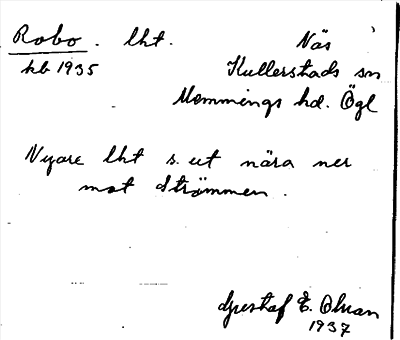 Robo. lht. Näs
kb 1935 Kullerstads sn
Memmings hd. Ögl
Nyare lht s. ut nära ner
mot Strömmen.
Gustaf E. Olsson
1937